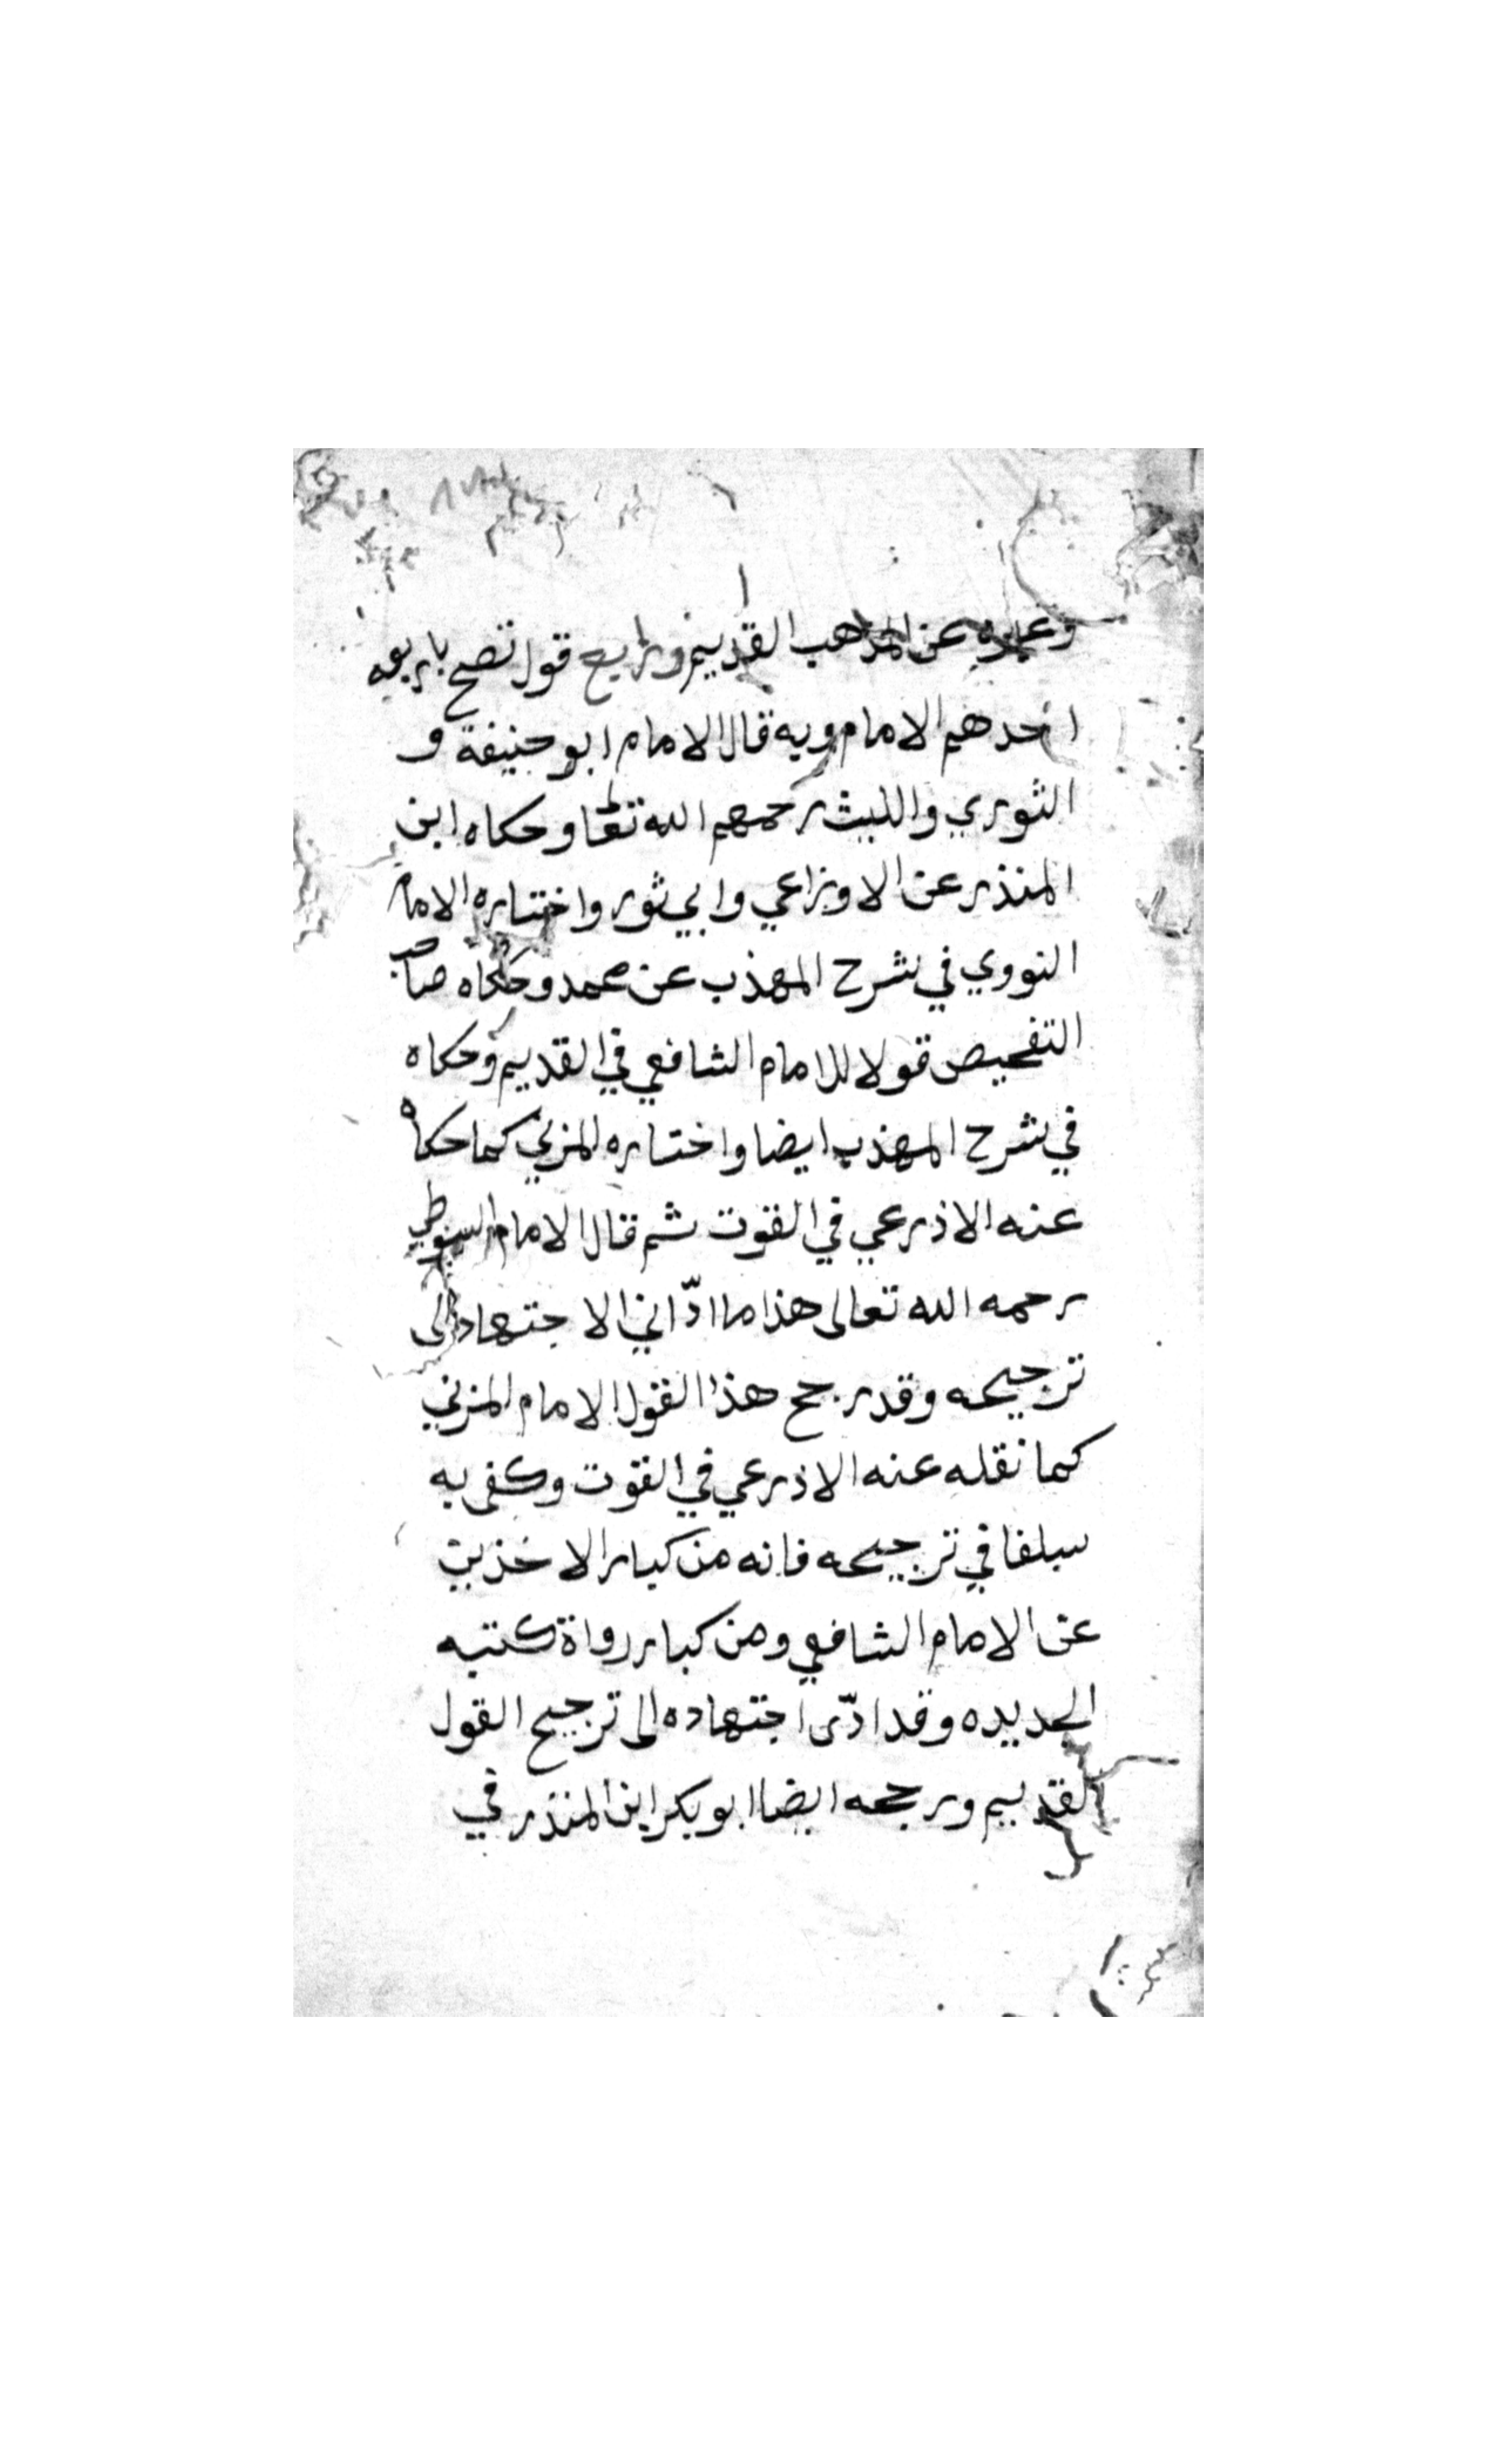 وغيره عن المذهب القديم ورابع قول تصح باربعه
احدهم الامام وبه قال الامام ابو حنيفة و
الثوري والليث رحمهم الله تعا وحكاه ابن
المنذر عن الاوزاعي وابي ثور واختاره الامام
النووي في شرح المهذب عن محمد وحكاه صاحب
التلخيص قولا للامام الشافعي في القديم وحكاه
في شرح المهذب ايضا واختاره المزني كما حكاه
عنه الاذرعي في القوت ثم قال الامام السيوطي
رحمه الله تعالى هذا ما ادّاني الاجتهاد الى
ترجيحه وقد رجح هذا القول الامام المزني
كما نقله عنه الاذرعي في القوت وكفى به
سلفا في ترجيحه فانه من كبار الاخذين
عن الامام الشافعي ومن كبار رواة كتبه
الجديده وقد ادّى اجتهاده الى ترجيح القول
القديم ورجحه ايضا ابو بكر ابن المنذر في